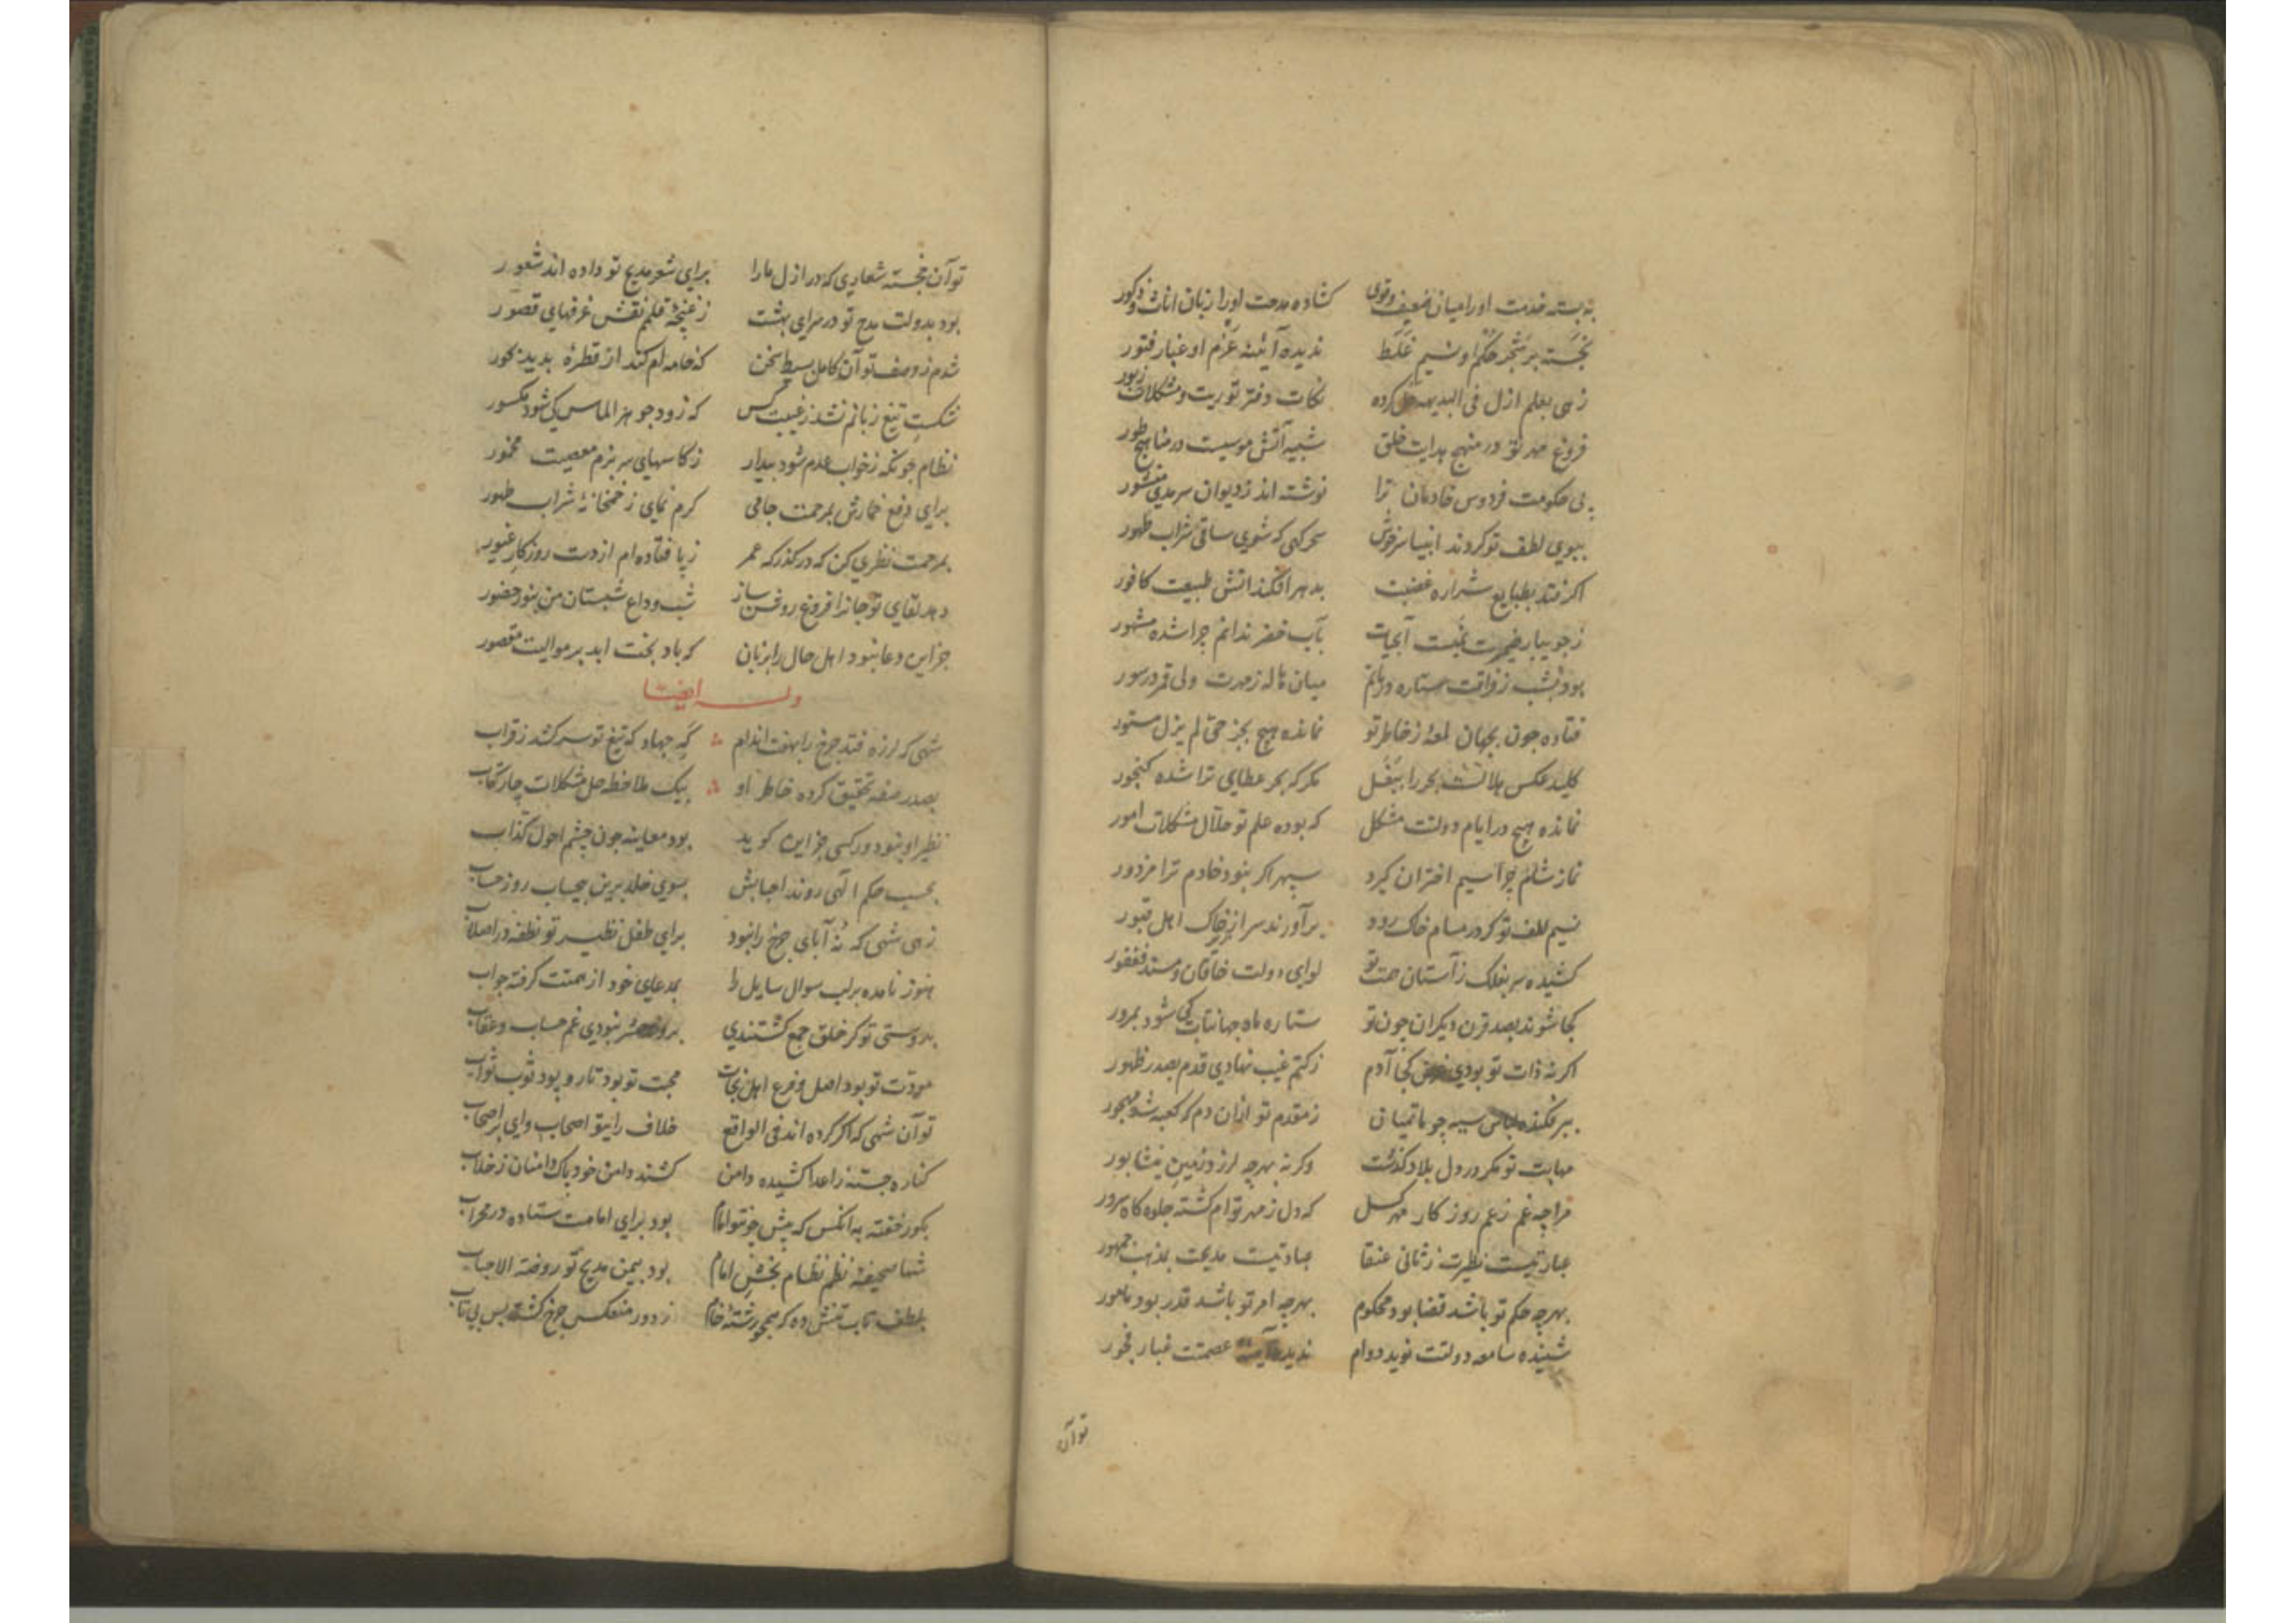 به بسته خدمت او را میان ضعیف و قوی کشاده مدحت او را زبان اناث و ذکور
نجسته بر شجر حکم او نسیم غلط ندیده آئینه عزم او غبار فتور
زهی بعلم ازل فی البدیهه حل کرده نکات دفتر توریت و مشکلات زبور
فروغ مهر تو در منهج هدایت خلق شبیه آتش موسیست در مناهج طور
پی حکومت فردوس خادمان ترا نوشته اند ز دیوان سرمدی منشور
ببوی لطف تو کردند انبیا سرخوش سحرکهی که شوی ساقی شراب طهور
اکر فتد بطبایع شراره غضبت بدهر افکند اتش طبیعت کافور
ز جویبار ضمیرت نمیست آبحیات بآب خضر ندانم چرا شده مشهور
بود بشب ز فراقت ستاره در ماتم میان هاله ز مهرت ولی قمر در سور
فتاده چون بجهان لمعهٔ ز خاطر تو نمانده هیچ بجز حق لم یزل مستور
کلید عکس هلالست بحر را ببغل مکر که بحر عطای ترا شده کنجور
نمانده هیچ در ایام دولتت مشکل که بوده علم تو حلال مشکلات امور
نماز شام چرا سیم اختران کیرد سپهر اکر نبود خادم ترا مزدور
نسیم لطف تو کر در مسام خاک رود برآورند سر از خاک اهل قبور
کشیده سر بفلک ز آستان حشمت تو لوای دولت خاقان و مسند فغفور
کجا شوند بصد قرن دیکران چون تو ستاره ماه جهانتاب کی شود بمرور
اکر نه ذات تو بودی غرض کجا آدم ز کتم غیب نهادی قدم بصدر ظهور
ببر فکنده لباس سیه چو ماتمیان ز مقدم تو ازان دم که کعبه شد مهجور
مهابت تو مکر در دل بلاد کذشت وکرنه بهر چه لرزد زمین نیشابور
مرا چه غم ز غم روزکار مهر کسل که دل ز مهر توام کشته جلوه کاه سرور
عبارتیست نظیرت ز ثانی عنقا عبادتیست مدیحت بمذهب جمهور
بهر چه حکم تو باشد قضا بود محکوم بهر چه امر تو باشد قدر بود مامور
شنیده سامعه دولتت نوید دوام ندیده آینه عصمتت غبار فجور
توآن
تو آن خجسته شعاری که در ازل ما را برای شعر مدیح تو داده اند شعور
بود بدولت مدح تو در سرای بهشت ز غنچهٔ قلمم نقش غرفهای قصور
شدم ز وصف تو آن کامل بسیط سخن که خامه ام کند از قطرهٔ پدید بحور
شکست تیغ زبانم نشد ز غیبت کس که زود جوهر الماس کی شود مکسور
نظام چونکه ز خواب عدم شود بیدار ز کاسهای سر بزم معصیت مخمور
برای دفع خمارش بمرحمت جامی کرم نمای ز خمخانهٔ شراب طهور
بمرحمت نظری کن که در کذرکه عمر ز پا فتاده ام از دست روزکار غیور
دهد لقای تو جانرا فروغ روشن ساز شب وداع شبستان من بنور حضور
جز این دعا نبود اهل حال را بزبان که باد بخت ابد بر موالیت مقصور
وله ایضا
شهی که لرزه فتد چرخ را بهفت اندام که جهاد که تیغ تو سر کشد ز قراب
بصدر صفه تحقیق کرده خاطر او بیک ملاحظه حل مشکلات چار کتاب
نظیر او نبود ور کسی جز این کوید بود معاینه چون چشم احول کذاب
بحسب حکم الهی روند احبابش بسوی خلد برین بیحساب روز حساب
زهی شهی که نه آبای چرخ را نبود برای طفل نظیر تو نطفه در اصلاب
هنوز نامده بر لب سوال سایل را مدعای خود از همتت کرفته جواب
بدوستی تو کر خلق جمع کشتندی بروز حشر نبودی غم حساب و عقاب
مودت تو بود اصل و فرع اهل نجات محبت تو بود تار و پود ثوب ثواب
تو آن شهی که اکر کرده اند فی الواقع خلاف رای تو اصحاب وای بر اصحاب
کناره جسته ز اعدا کشیده دامن کشند دامن خود پاک دامنان ز خلاب
بکور خفته به انکس که پیش چو تو امام بود برای امامت ستاده در محراب
شها صحیفهٔ نظم نظام بخش امام بود بیمن مدیح تو روضة الاحباب
بلطف تاب تنش ده که همچو رشتهٔ خام ز دور منعکس چرخ کشته بس بی تاب